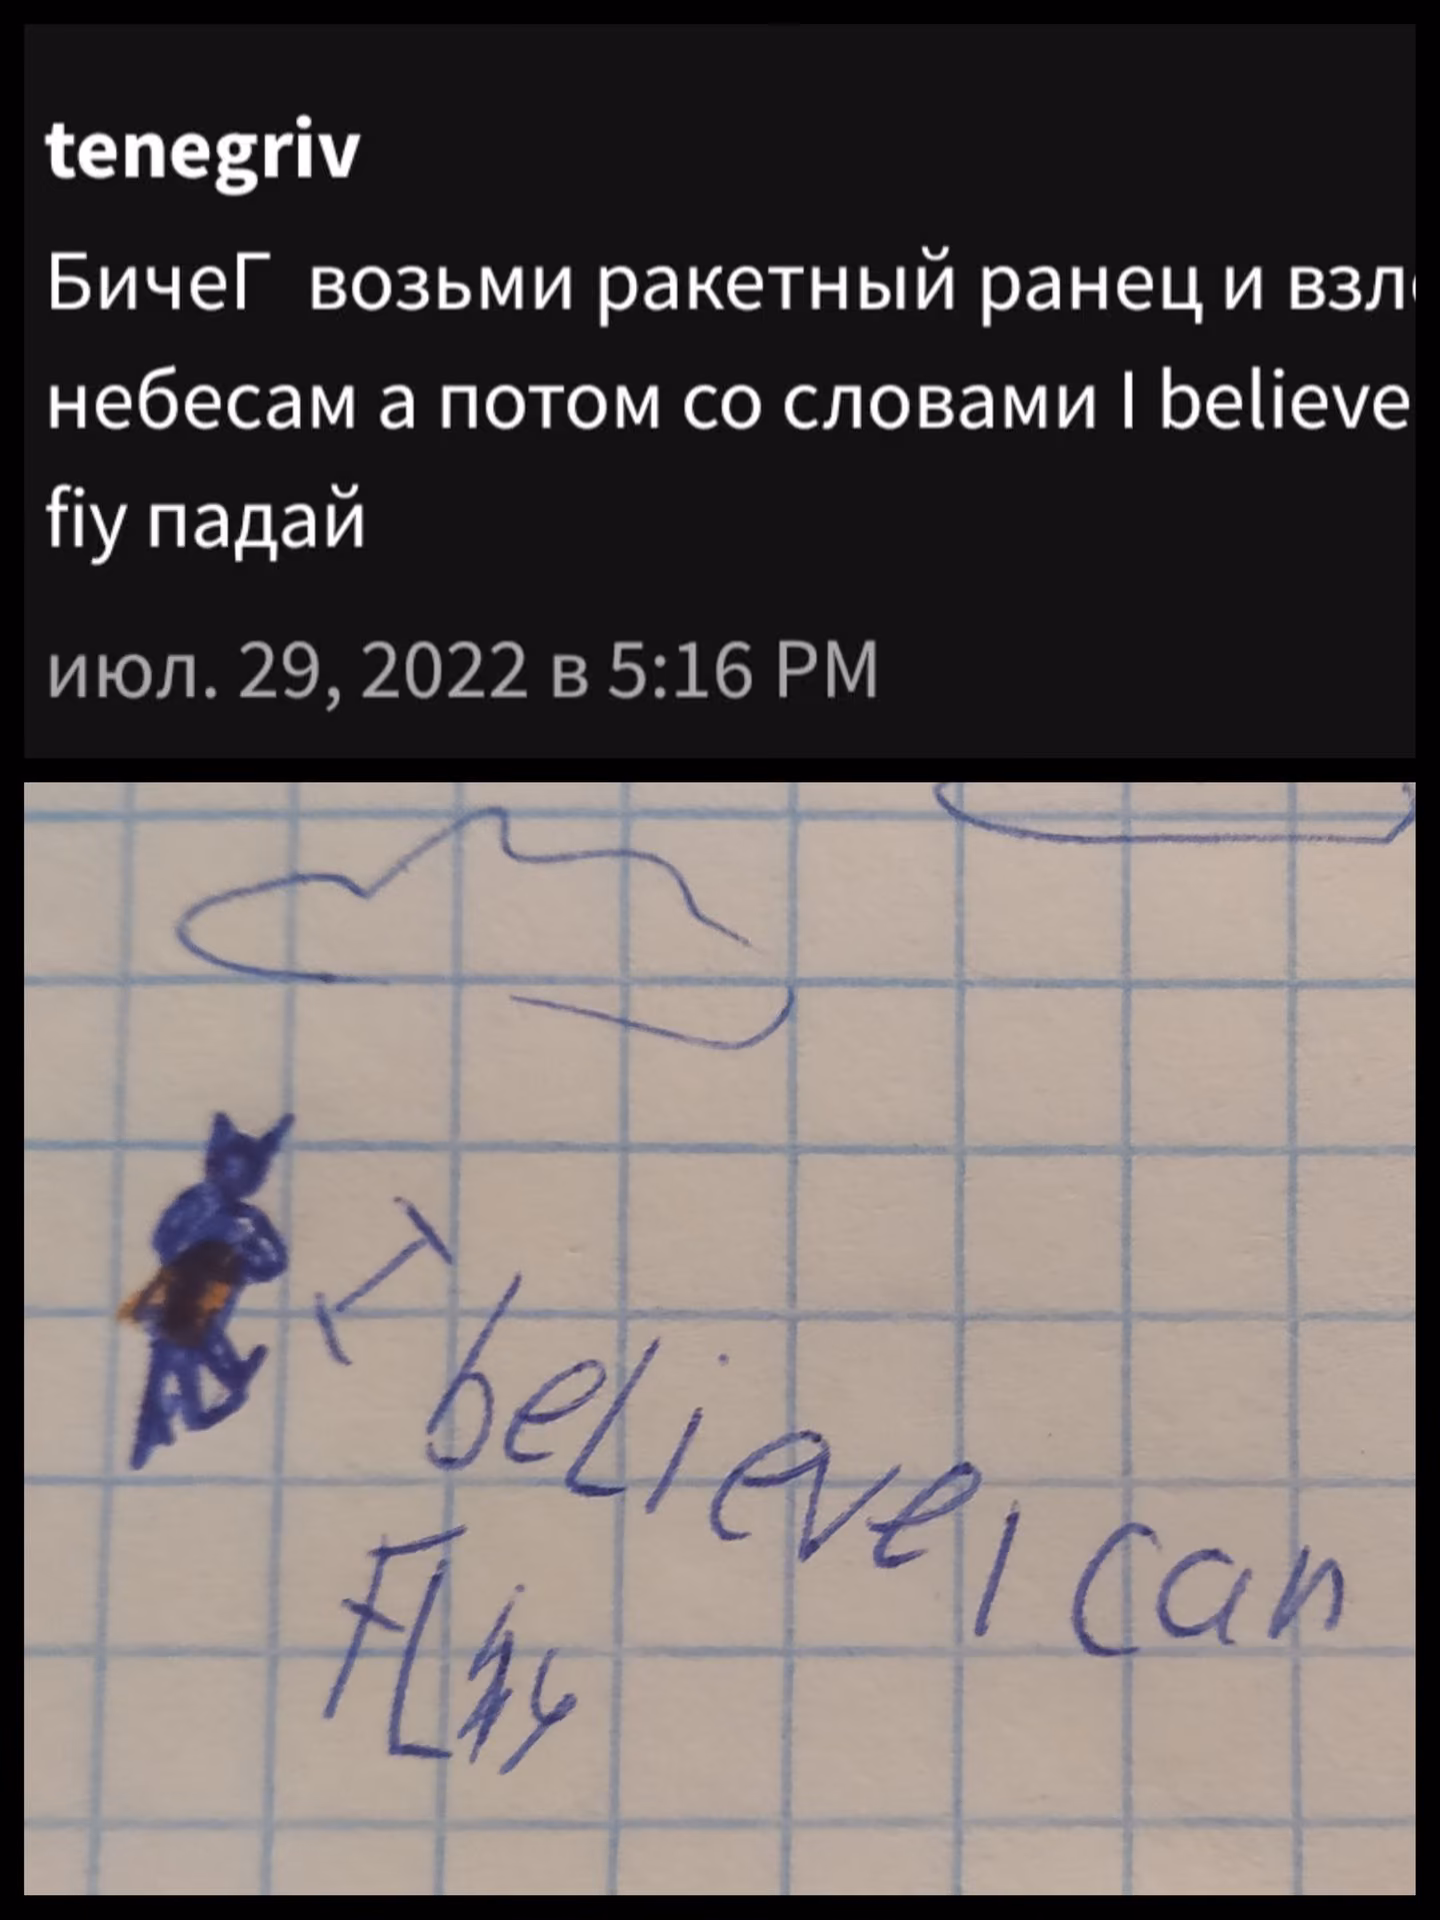 tenegriv
БичеГ возьми ракетный ранец и взл
небесам а потом со словами I believe
fiy падай
июл. 29, 2022 в 5:16 PM
I believe, I can
FLy